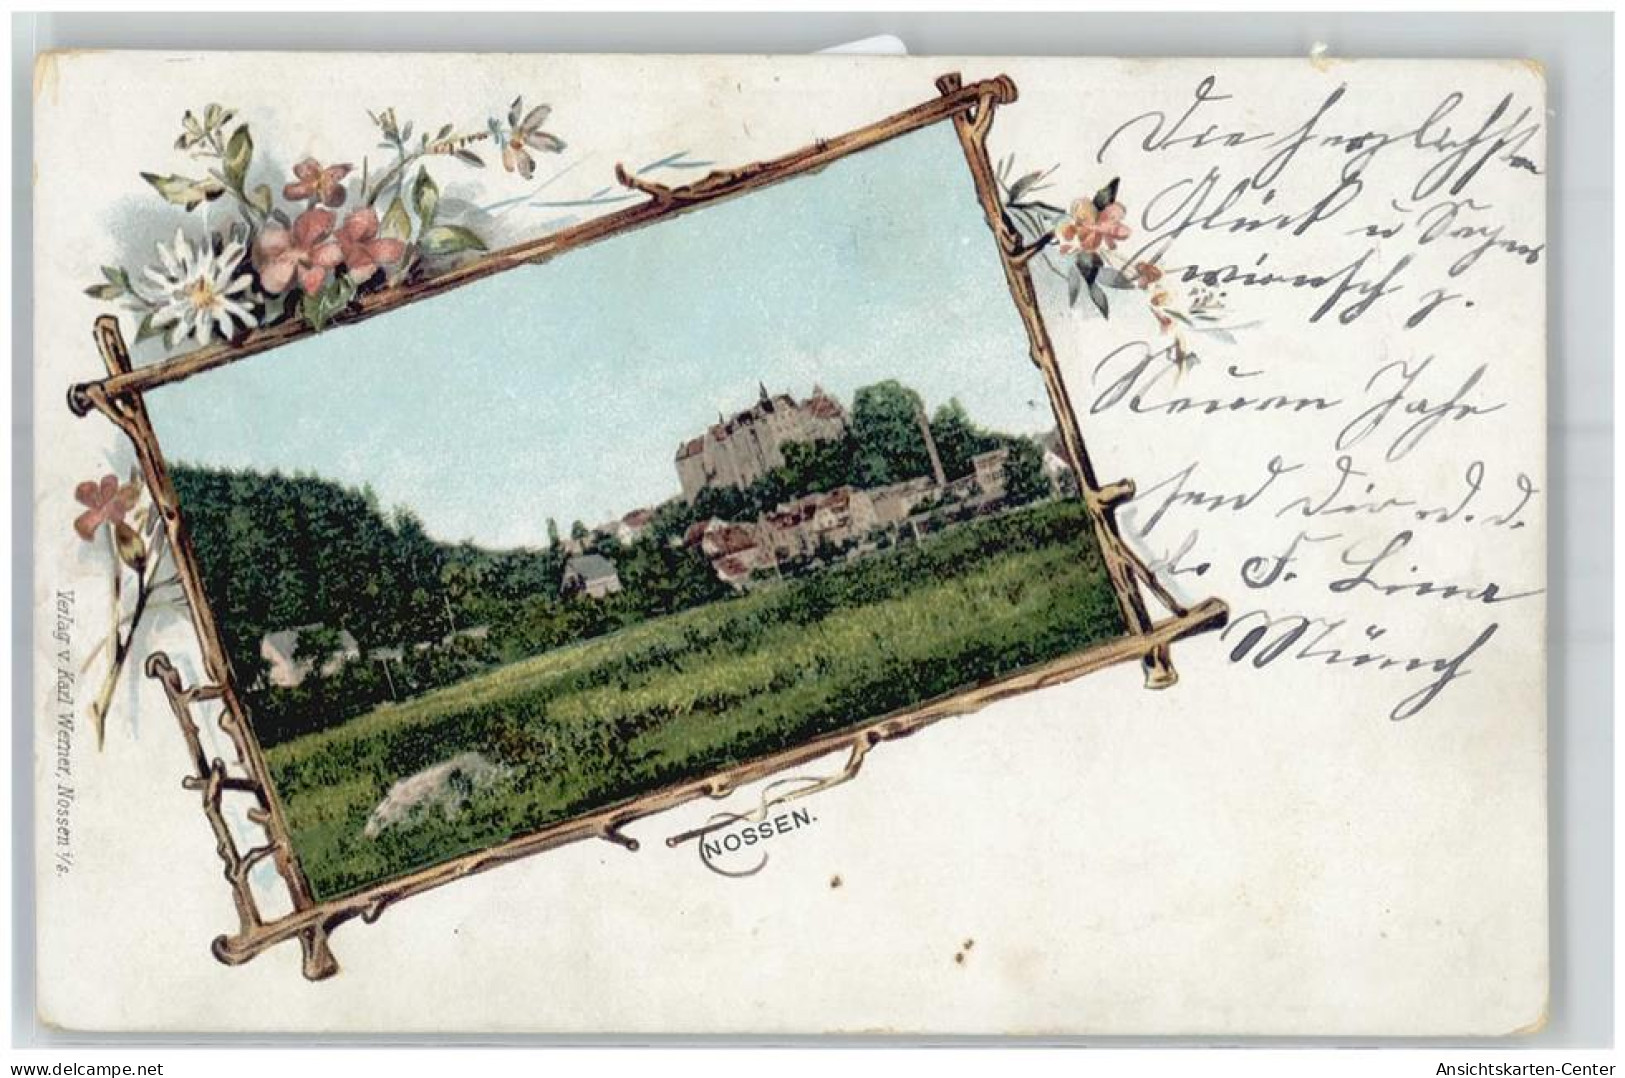 Die herzlichsten
Glück u Segens
wünsch z.
Neuen Jahr
send Dir
F. Lina
Münch
NOSSEN.
Verlag v. Karl Werner, Nossen i/s.
www.delcampe.net
Ansichtskarten-Center